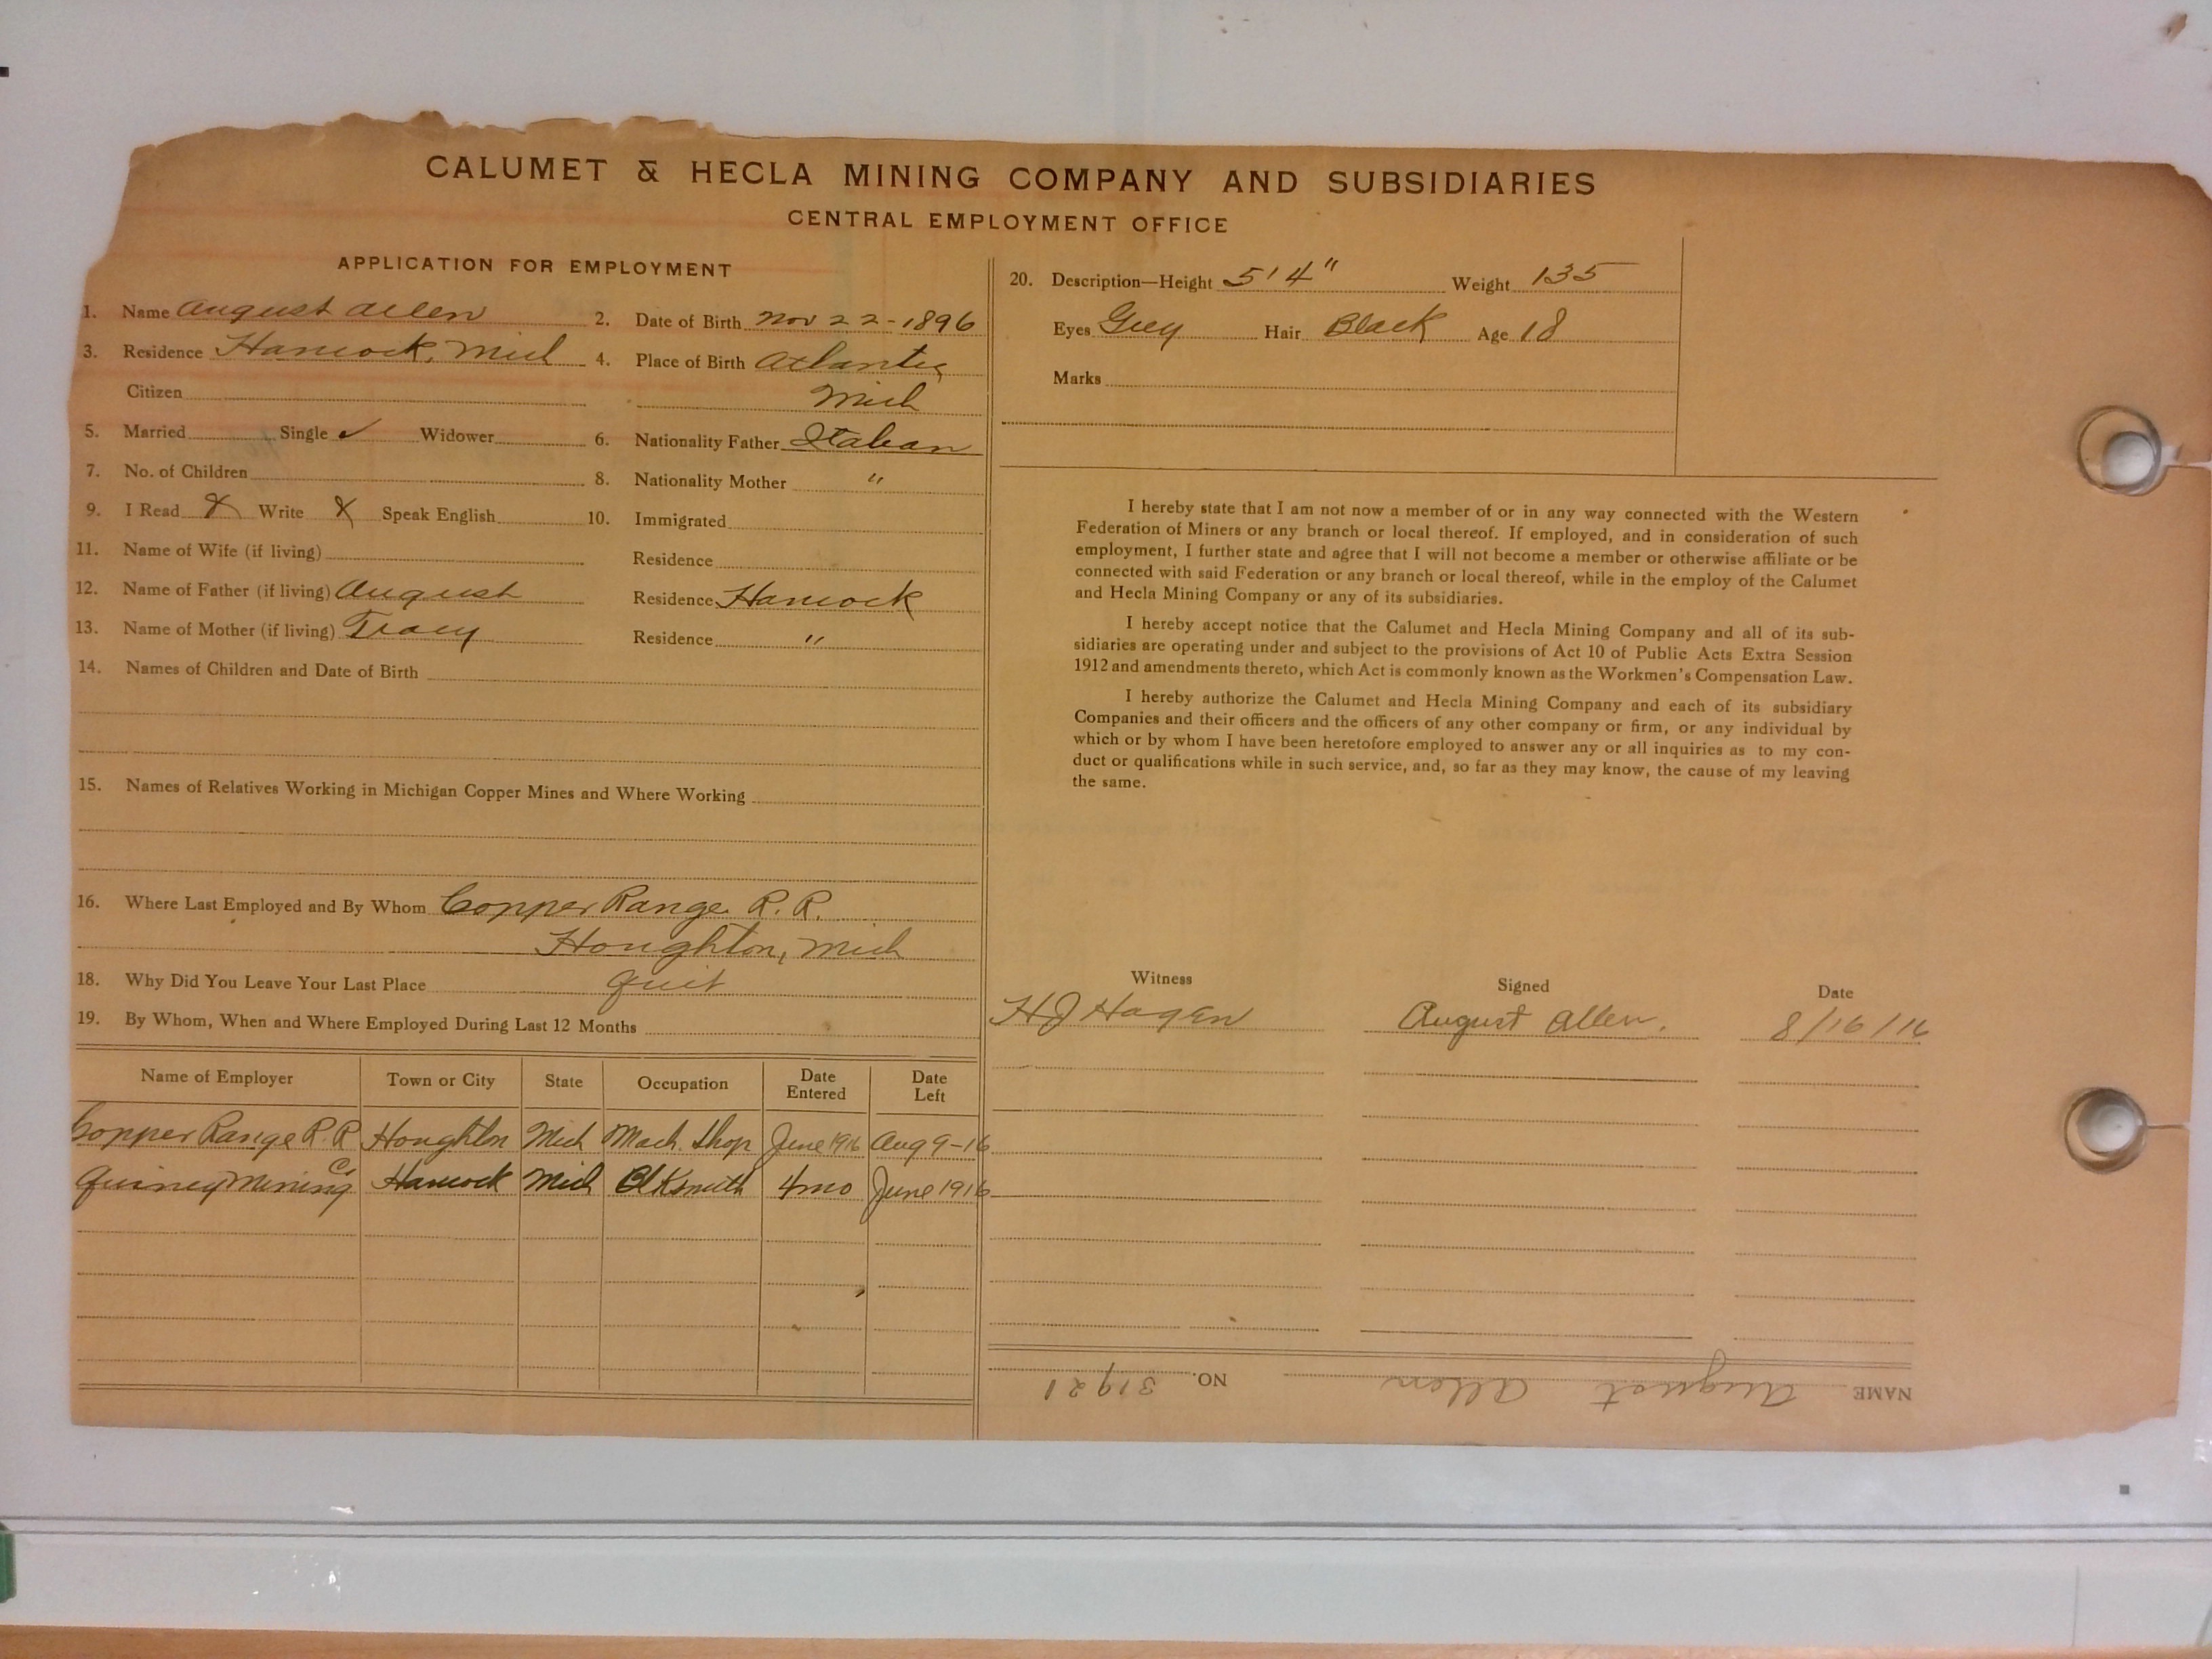 CALUMET & HECLA MINING COMPANY AND SUBSIDIARIES
CENTRAL EMPLOYMENT OFFICE
APPLICATION FOR EMPLOYMENT
1. Name August Allen 2. Date of Birth Nov 22-1896
3. Residence Hancock, Mich 4. Place of Birth Atlantic
Citizen Mich
5. Married Single ✓ Widower 6. Nationality Father Italian
7. No. of Children 8. Nationality Mother "
9. I Read X Write X Speak English 10. Immigrated
11. Name of Wife (if living) Residence
12. Name of Father (if living) August Residence Hancock
13. Name of Mother (if living) Tracy Residence "
14. Names of Children and Date of Birth
15. Names of Relatives Working in Michigan Copper Mines and Where Working
16. Where Last Employed and By Whom Copper Range R. R.
Houghton, Mich
18. Why Did You Leave Your Last Place Quit
19. By Whom, When and Where Employed During Last 12 Months
Name of Employer Town or City State Occupation Date Entered Date Left
Copper Range R. R. Houghton Mich Mach. Shop June 1916 Aug 9-16
Quincy Mining Co Hancock Mich Blksmith 4mo June 1916
20. Description—Height 5'4" Weight 135
Eyes Grey Hair Black Age 18
Marks
I hereby state that I am not now a member of or in any way connected with the Western
Federation of Miners or any branch or local thereof. If employed, and in consideration of such
employment, I further state and agree that I will not become a member or otherwise affiliate or be
connected with said Federation or any branch or local thereof, while in the employ of the Calumet
and Hecla Mining Company or any of its subsidiaries.
I hereby accept notice that the Calumet and Hecla Mining Company and all of its sub-
sidiaries are operating under and subject to the provisions of Act 10 of Public Acts Extra Session
1912 and amendments thereto, which Act is commonly known as the Workmen's Compensation Law.
I hereby authorize the Calumet and Hecla Mining Company and each of its subsidiary
Companies and their officers and the officers of any other company or firm, or any individual by
which or by whom I have been heretofore employed to answer any or all inquiries as to my con-
duct or qualifications while in such service, and, so far as they may know, the cause of my leaving
the same.
Witness Signed Date
H J Hagen August Allen. 8/16/16
NAME August Allen NO. 31921